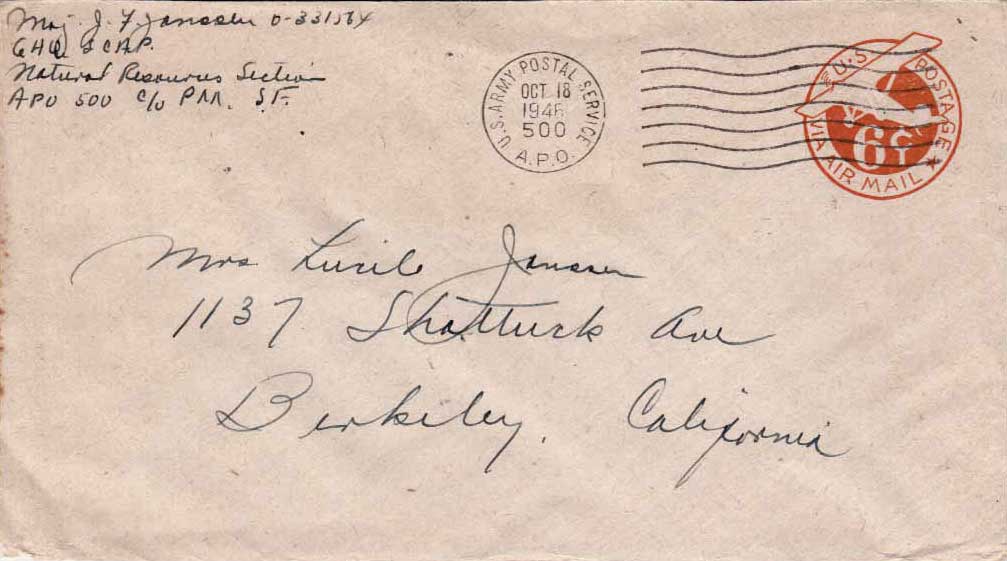 Maj. J. F. Janssen O-331564
GHQ SCAP.
Natural Resources Section
APO 500 c/o PM. S.F.
U.S. ARMY POSTAL SERVICE
OCT 18
1946
500
A.P.O.
U.S. POSTAGE
6¢
VIA AIR MAIL
Mrs Lucile Janssen
1137 Shattuck Ave
Berkeley, California